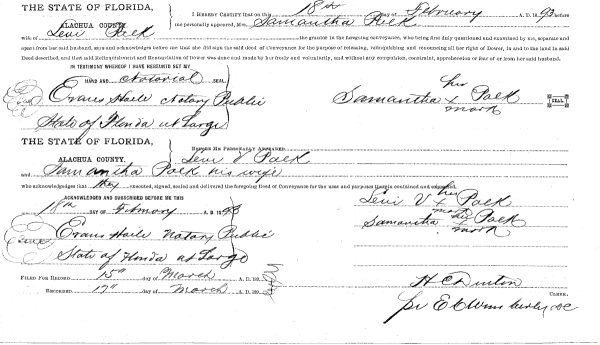 THE STATE OF FLORIDA,
ALACHUA COUNTY.
I HEREBY CERTIFY that on this 18th day of February A. D. 1893 before
me personally appeared, Mrs. Samantha Polk
wife of Levi Polk the grantor in the foregoing conveyance, who being first duly questioned and examined by me, separate and
apart from her said husband, says and acknowledges before me that she did sign the said deed of Conveyance for the purpose of releasing, relinquishing and renouncing all her right of Dower, in and to the land in said
Deed described, and that said Relinquishment and Renunciation of Dower was done and made by her freely and voluntarily, and without any compulsion, constraint, apprehension or fear of or from her said husband.
IN TESTIMONY WHEREOF I HAVE HEREUNTO SET MY
HAND AND Notarial SEAL
Evans Haile Notary Public
State of Florida at Large
her
Samantha x Polk
mark
SEAL
THE STATE OF FLORIDA,
ALACHUA COUNTY.
BEFORE ME PERSONALLY APPEARED Levi V Polk
and Samantha Polk his wife
who acknowledges that they executed, signed, sealed and delivered the foregoing Deed of Conveyance for the uses and purposes therein contained and expressed.
ACKNOWLEDGED AND SUBSCRIBED BEFORE ME THIS
18th DAY OF February A. D. 1893
Evans Haile Notary Public
State of Florida at Large
his
Levi V x Polk
mark
her
Samantha x Polk
mark
FILED FOR RECORD 15th day of March A. D. 189
RECORDED 17th day of March A. D. 189
H C Denton
CLERK.
pr E C Wimberly DC